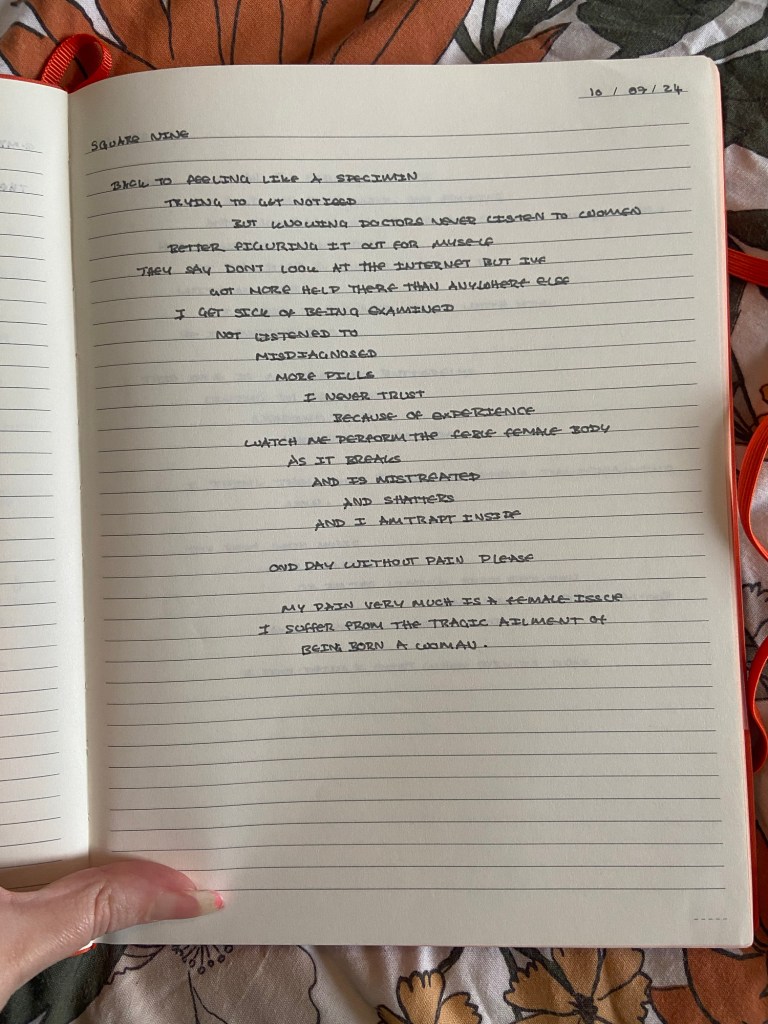 10 / 09 / 24
SQUARE NINE
BACK TO FEELING LIKE A SPECIMIN
TRYING TO GET NOTICED
BUT KNOWING DOCTORS NEVER LISTEN TO WOMEN
BETTER FIGURING IT OUT FOR MYSELF
THEY SAY DONT LOOK AT THE INTERNET BUT IVE
GOT MORE HELP THERE THAN ANYWHERE ELSE
I GET SICK OF BEING EXAMINED
NOT LISTENED TO
MISDIAGNOSED
MORE PILLS
I NEVER TRUST
BECAUSE OF EXPERIENCE
WATCH ME PERFORM THE FEBLE FEMALE BODY
AS IT BREAKS
AND IS MISTREATED
AND SHATTERS
AND I AM TRAPT INSIDE
OND DAY WITHOUT PAIN PLEASE
MY PAIN VERY MUCH IS A FEMALE ISSUE
I SUFFER FROM THE TRAGIC AILMENT OF
BEING BORN A WOMAN.